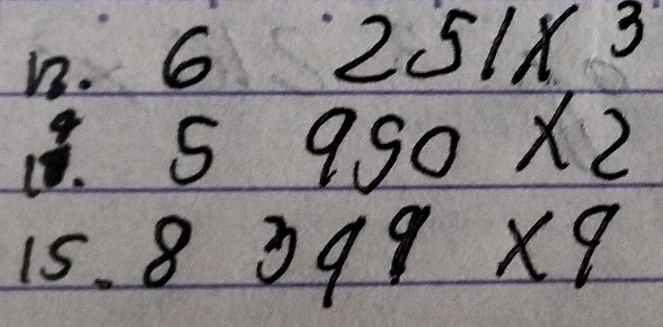 13. 6 251 x 3
14. 5 950 x 2
15. 8 399 x 9